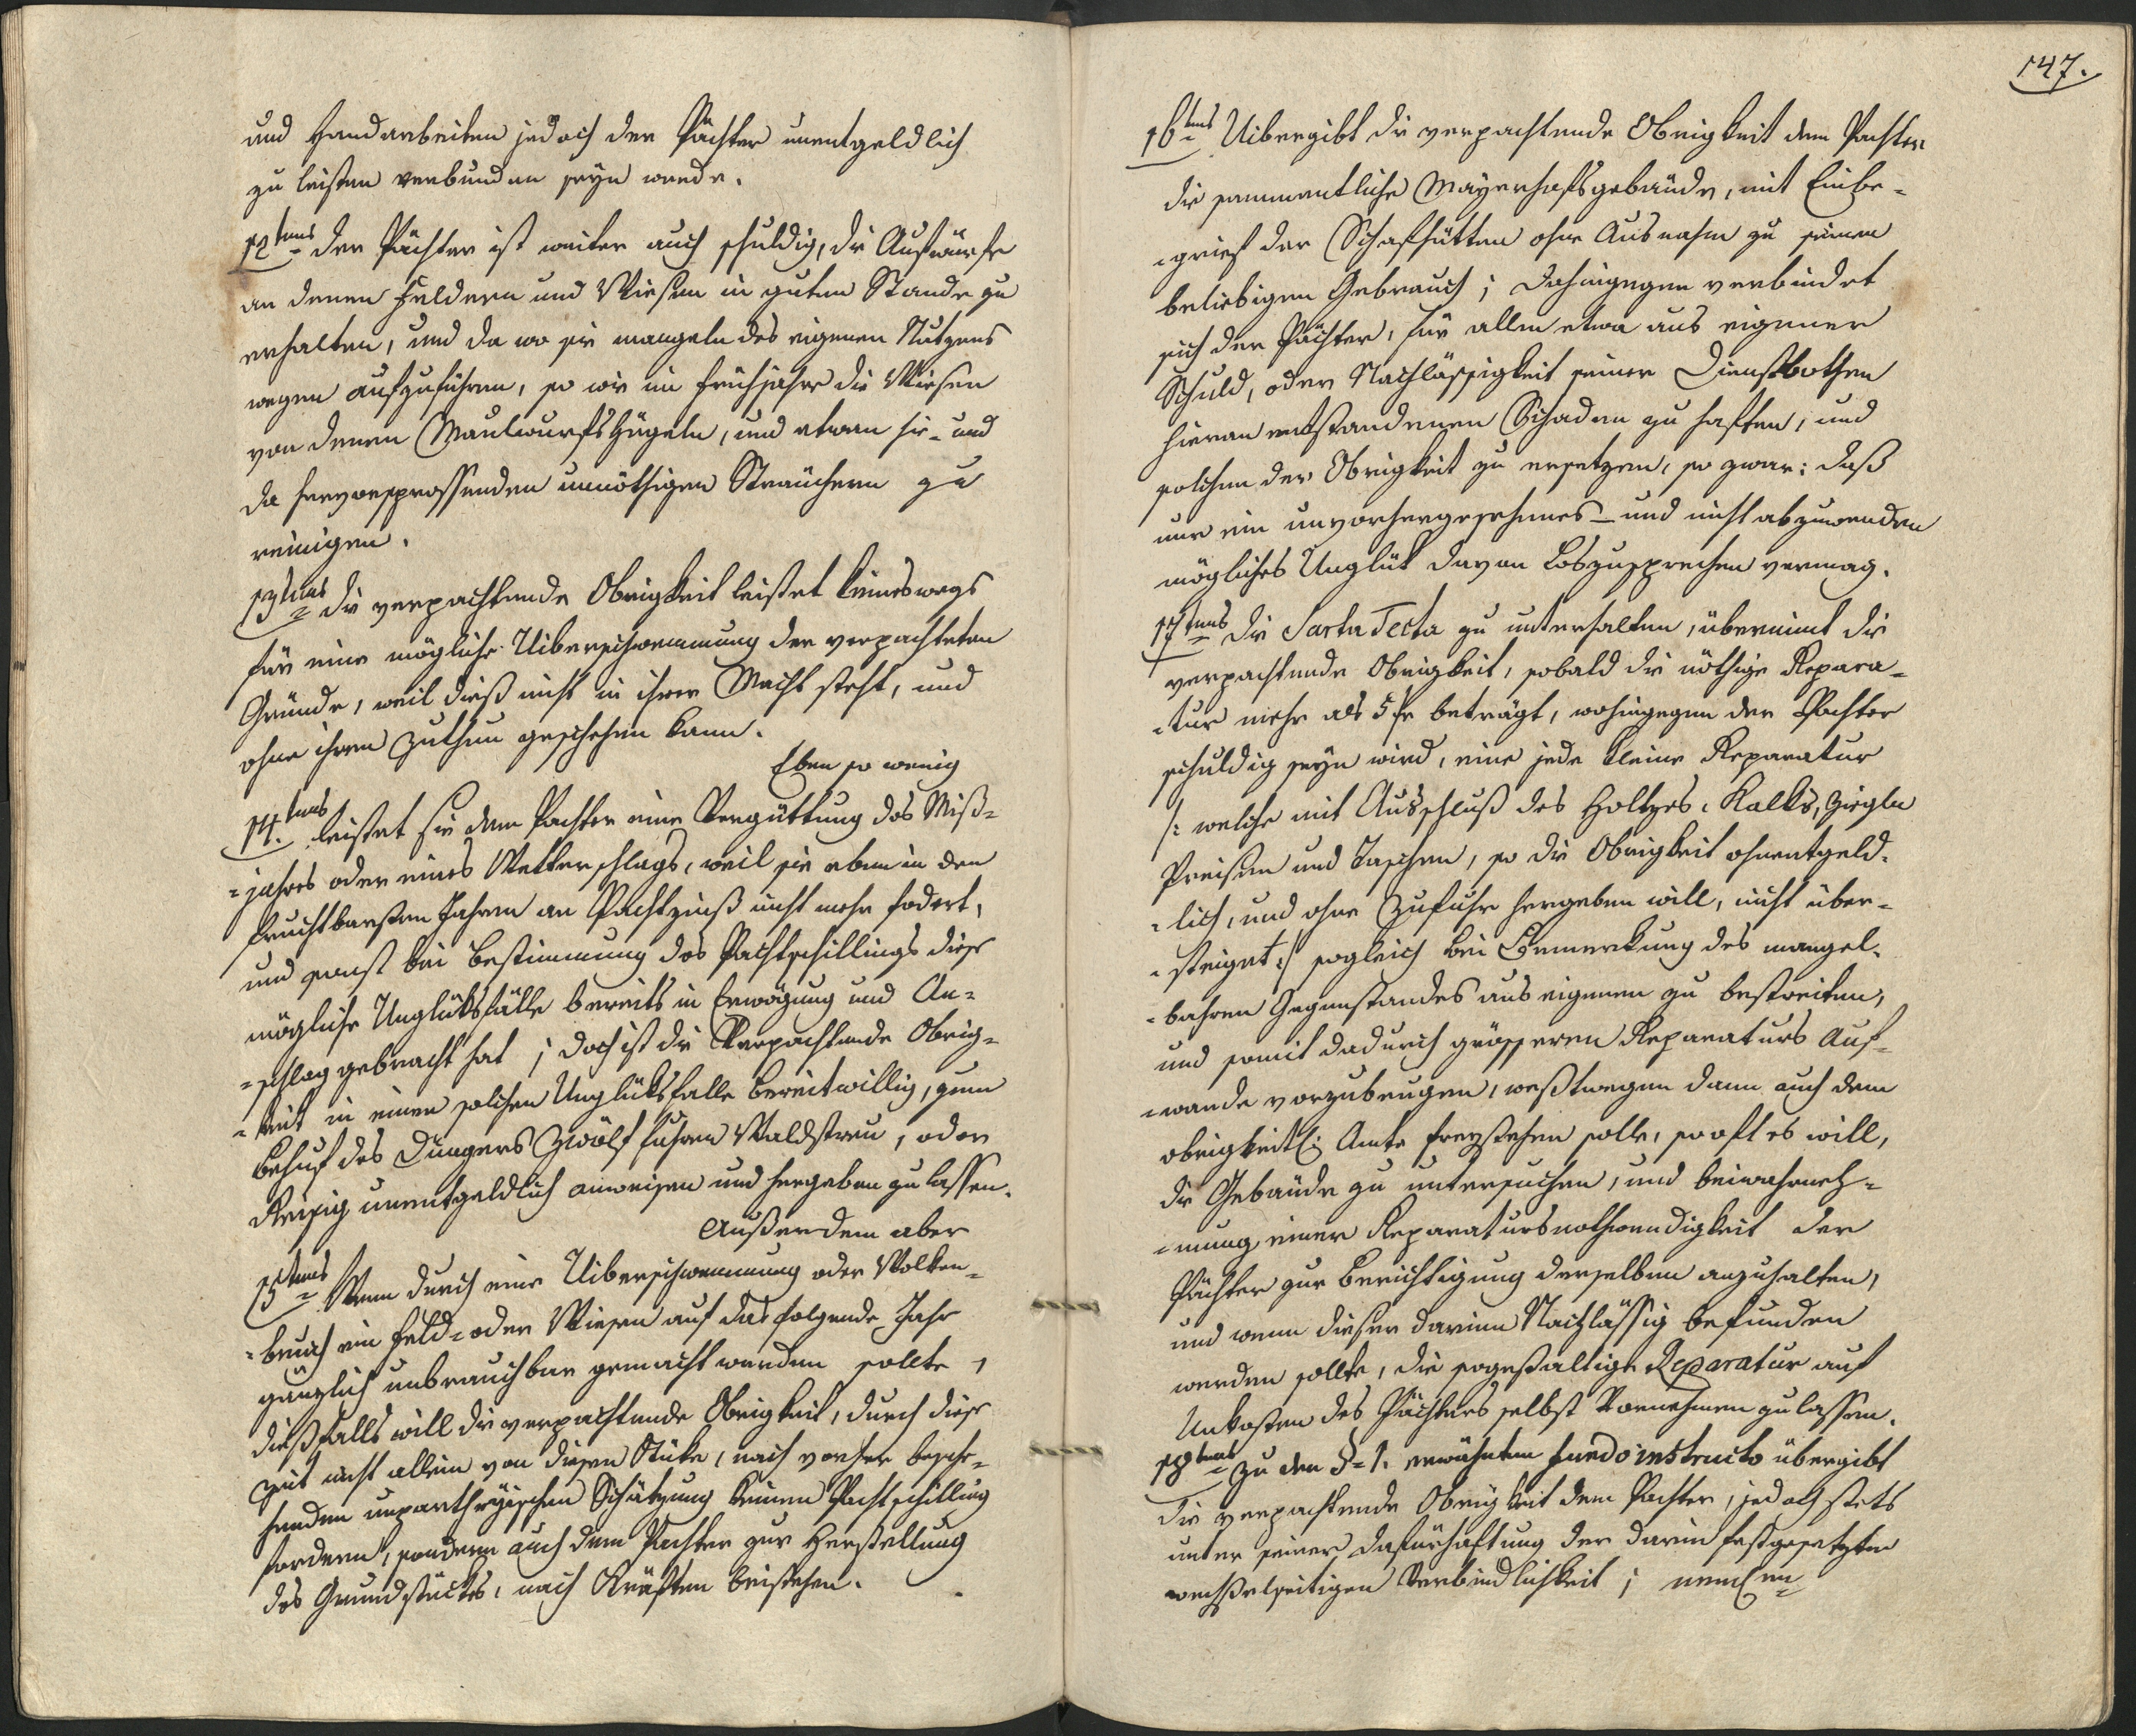 und Handarbeiten jedoch der Pächter unentgeldlich
zu leisten verbunden seyn werde.
12tens der Pächter ist weiter auch schuldig, die Aufwürfe
an denen Feldern und Wiesen in gutem Stande zu
erhalten, und da wo sie mangeln des eigenen Nutzens
wegen aufzuführen, so wie im Frühjahre die Wiesen
von denen Maulwurfshügeln, und etwan hie- und
da hervorsprossenden unnöthigen Sträuchern zu
reinigen.
13tens die verpachtende Obrigkeit leistet keineswegs
für eine mögliche Uiberschwemmung der verpachteten
Gründe, weil dieß nicht in ihrer Macht steht, und
ohne ihren Zuthun geschehen kann.
Eben so wenig
14.tens leistet sie dem Pachter eine Vergüttung des Miß-
-jahres oder eines Wetterschlags, weil sie eben in den
fruchtbarsten Jahren an Pachtzinß nicht mehr fodert,
und sonst bei Bestimmung des Pachtschillings diese
mögliche Unglüksfälle bereits in Erwägung und An-
-schlag gebracht hat; doch ist die Verpachtende Obrig-
-keit in einen solchen Unglüksfalle bereitwillig, zum
Behuf des Düngers zwölf Fuhren Waldstreu, oder
Reisig unentgeldlich anweisen und hergeben zu lassen.
Ausserdem aber
15tens Wenn durch eine Uiberschwemmung oder Wolken-
-bruch ein Feld- oder Wiesen auf das folgende Jahr
gänzlich unbrauchbar gemacht werden sollte,
dießfalls will die verpachtende Obrigkeit, durch diese
Zeit nicht allein von diesen Stüke, nach vorher besche-
henden unpartheyischen Schätzung keinen Pachtschilling
fordern, sondern auch dem Pachter zur Herstellung
des Grundstückes, nach Kräften beistehen.
147.
16tens Uibergibt die verpachtende Obrigkeit dem Pachter
die sammentliche Mayerhofsgebäude, mit Einbe-
-grief der Schafhütten ohne Ausnahm zu seinen
beliebigen Gebrauch; Dahingegen verbindet
sich der Pächter, für allen etwa aus eigener
Schuld, oder Nachlässigkeit seiner Dienstbothen
hieran entstandenen Schaden zu haften, und
solchen der Obrigkeit zu ersetzen, so zwar: daß
nur ein unvorhergesehenes- und nicht abzuwenden
mögliches Unglük davon Loszusprechen vermag.
17tens die Sarta Tecta zu unterhalten, übernimt die
verpachtende Obrigkeit, sobald die nöthige Repara-
-tur mehr als 5 fr beträgt, wohingegen der Pachter
schuldig seyn wird, eine jede kleine Reparatur
/: welche mit Ausschluß des Holtzes, Kalks, Ziegln
Preisen und Taschen, so die Obrigkeit ohnentgeld-
-lich, und ohne Zufuhr hergeben will, nicht über-
-steiget :/ sogleich bei Bemerkung des mangel-
-bahren Gegenstandes aus eigenen zu bestreiten,
und somit dadurch grösseren Reparaturs Auf-
-wande vorzubeugen, weßtwegen dann auch dem
obrigkeitl: Amte freystehen solle, so oft es will,
die Gebäude zu untersuchen, und beiwahrneh-
-mung einer Reparatursnothwendigkeit der
Pächter zur Berichtigung derselben anzuhalten,
und wenn dieser darinn Nachlässig befunden
werden sollte, die sogestaltige Reparatur auf
Unkosten des Pächters selbst Vornehmen zu lassen.
18tens zu den §-1. erwähnten fundo instructo übergibt
die verpachtende Obrigkeit dem Pachter, jedoch stets
unter seiner Dafürhaftung der darin festgesetzten
wechselseitigen Verbindlichkeit;